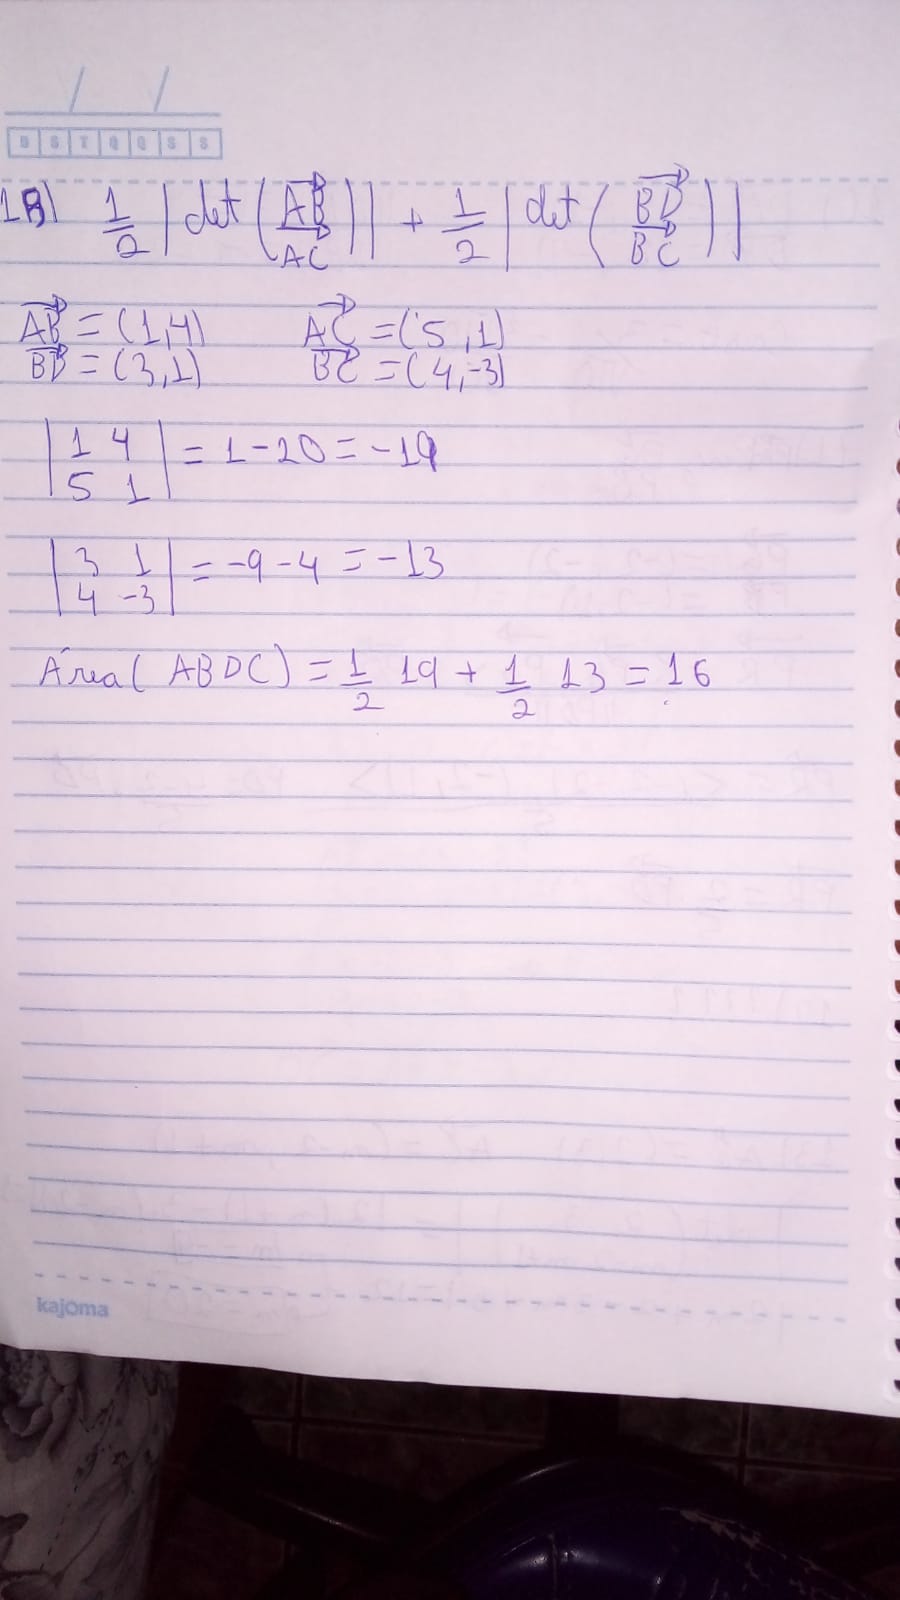 D S T Q Q S S
18) 1/2 |det(AB/AC)| + 1/2 |det(BD/BC)|
AB = (1,4) AC = (5,1)
BD = (3,1) BC = (4,-3)
|1 4| = 1-20 = -19
|5 1|
|3 1| = -9-4 = -13
|4 -3|
Área( ABDC) = 1/2 19 + 1/2 13 = 16
kajoma